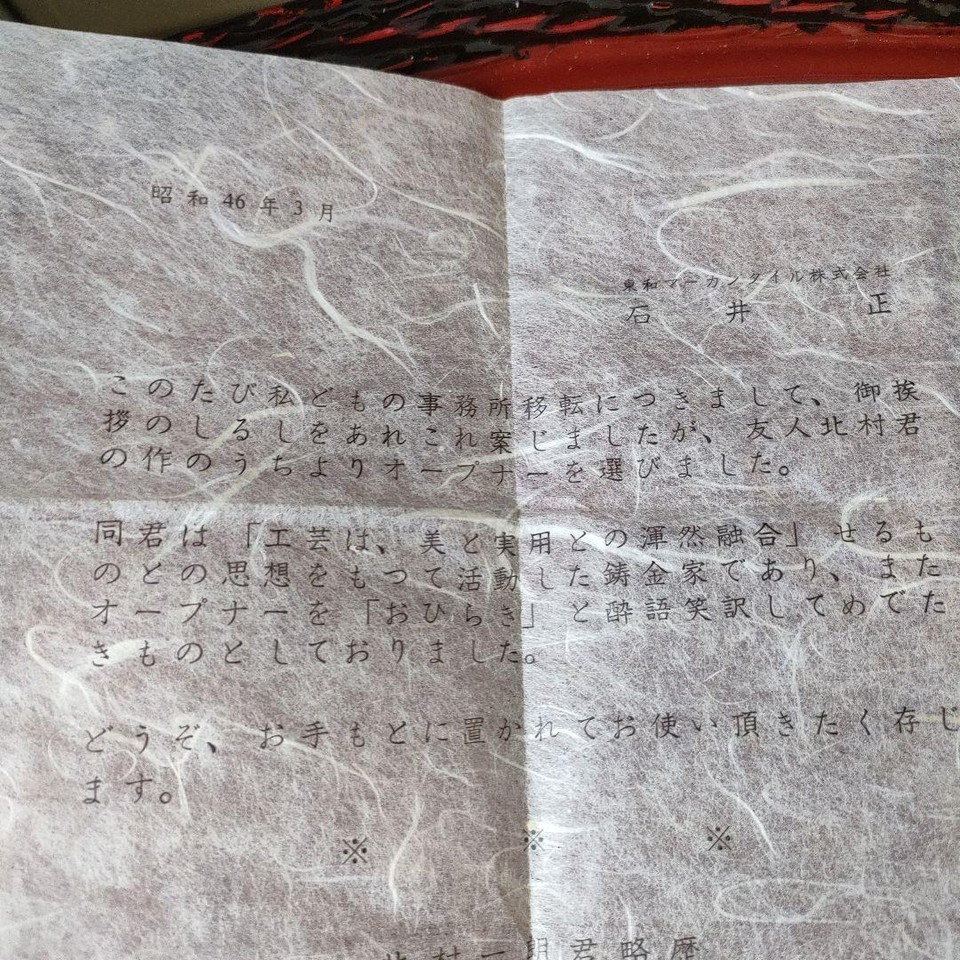 昭和46年3月
東和マーカンタイル株式会社
石井 正
このたび私どもの事務所移転につきまして、御挨
拶のしるしをあれこれ案じましたが、友人北村君
の作のうちよりオープナーを選びました。
同君は「工芸は、美と実用との渾然融合」せるも
のとの思想をもつて活動した鋳金家であり、また
オープナーを「おひらき」と酔語笑訳してめでた
きものとしておりました。
どうぞ、お手もとに置かれてお使い頂きたく存じ
ます。
※ ※ ※
北村一朗君略歴